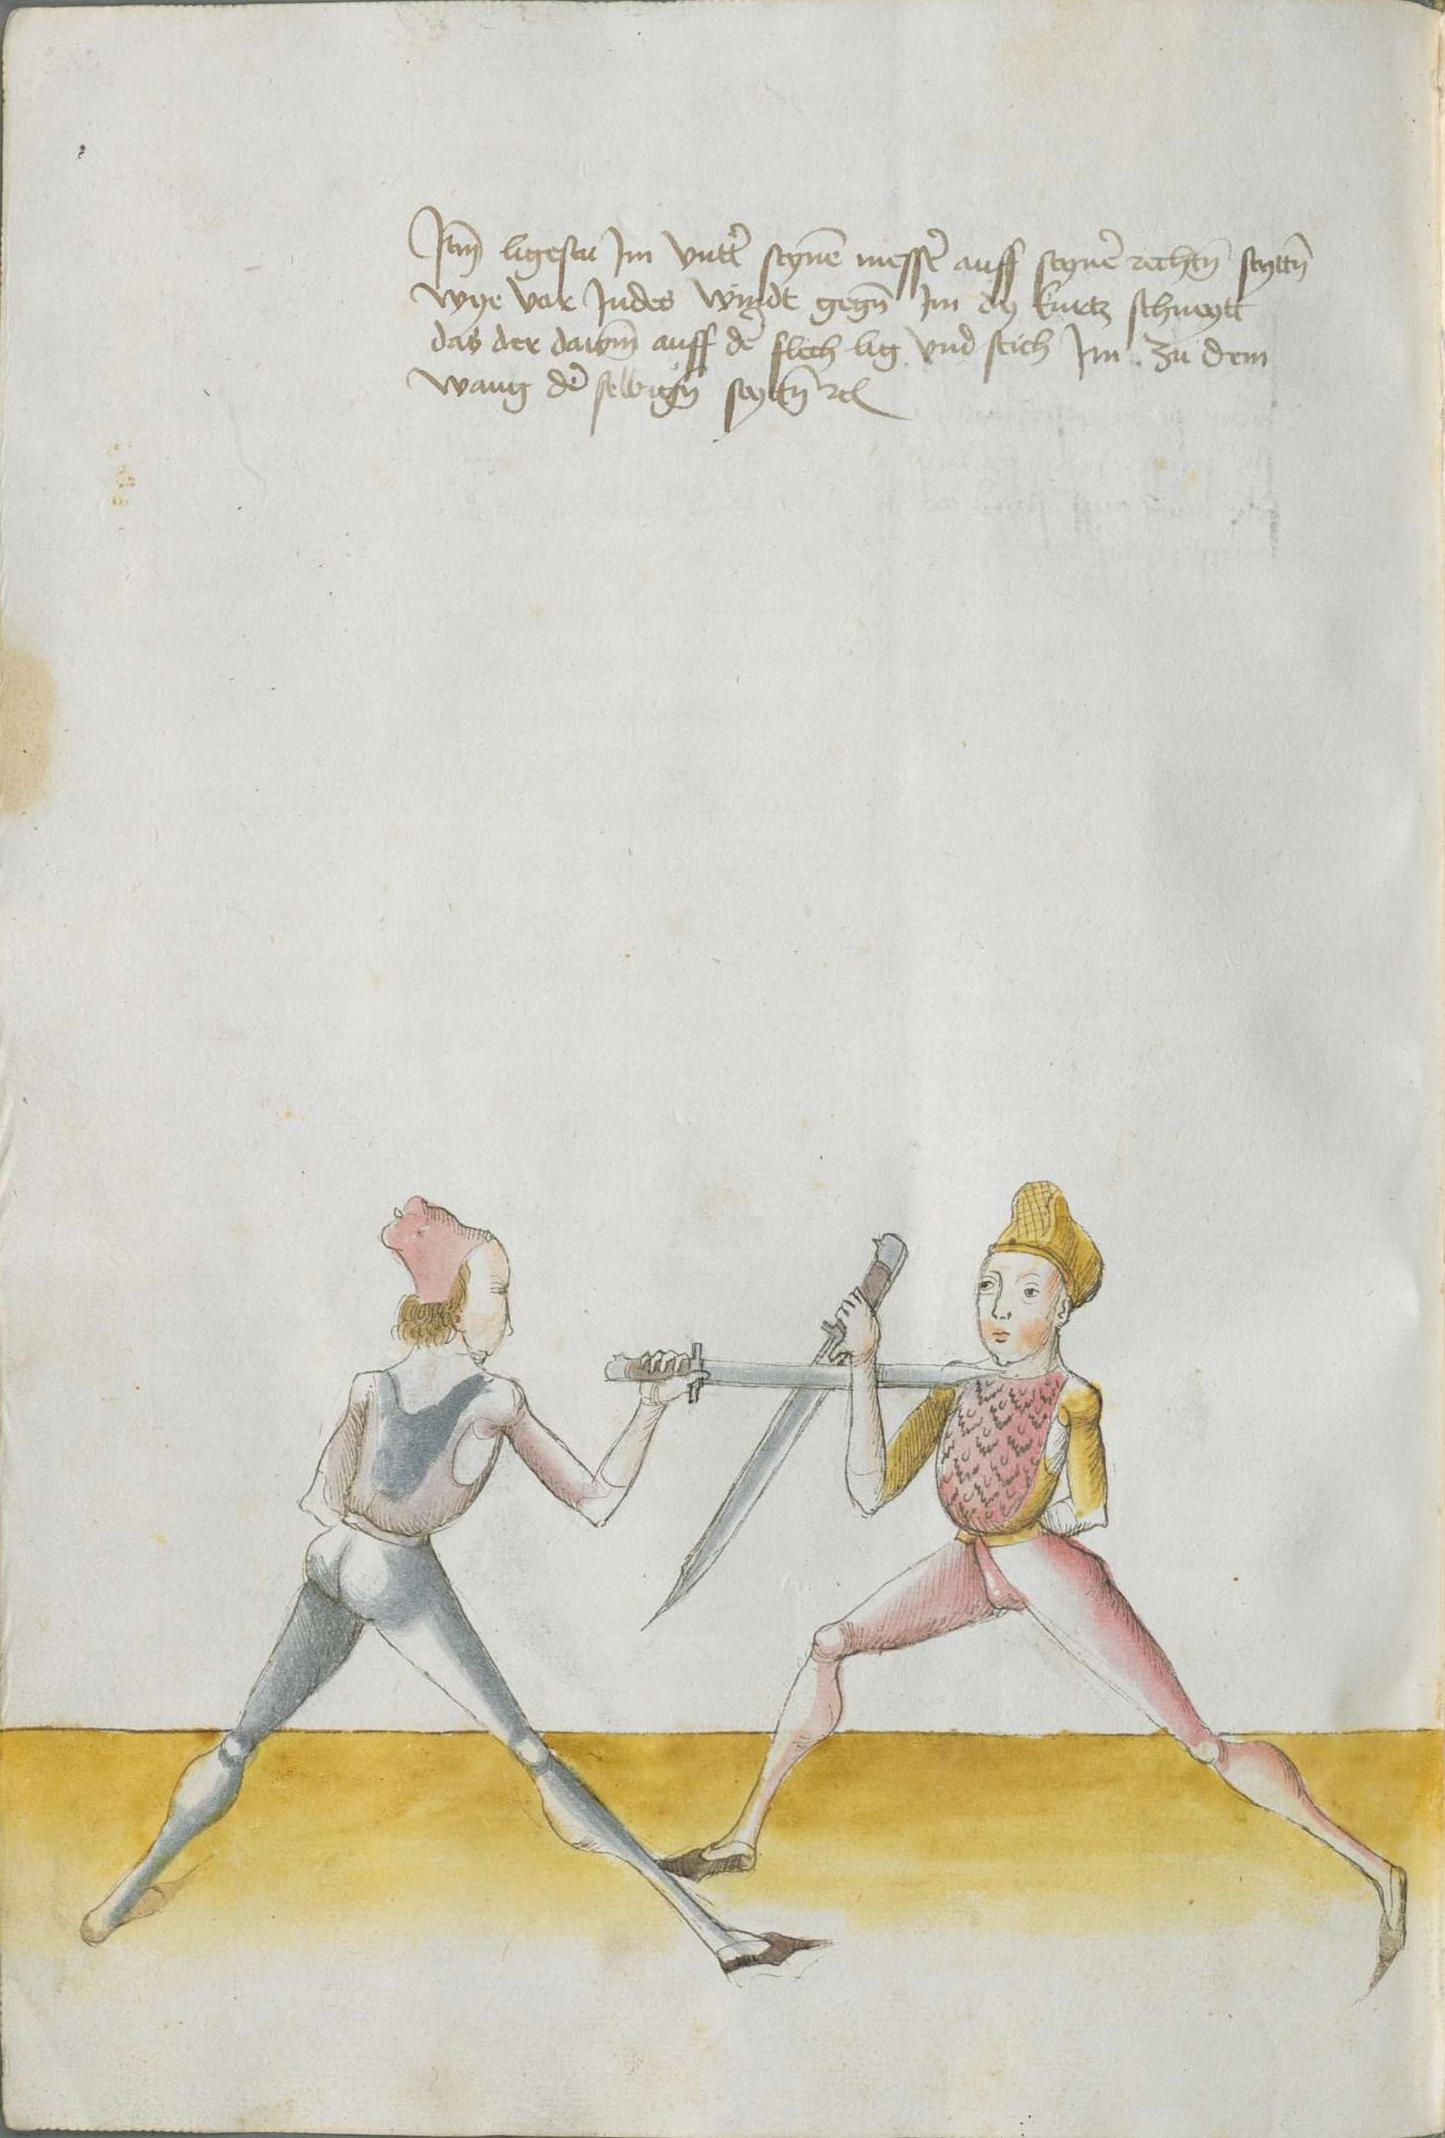 Itm̄ ligestu Im vntt̄ seynē messr̄ auff seynē rechtn̄ seyttn̄
wye vor Indes windt gegn̄ Im dy kurtz schneytt
das der dawm̄ auff dē flech lig vnd stich Im zu dem
wang dē selbign̄ seyttn̄ ⁊c